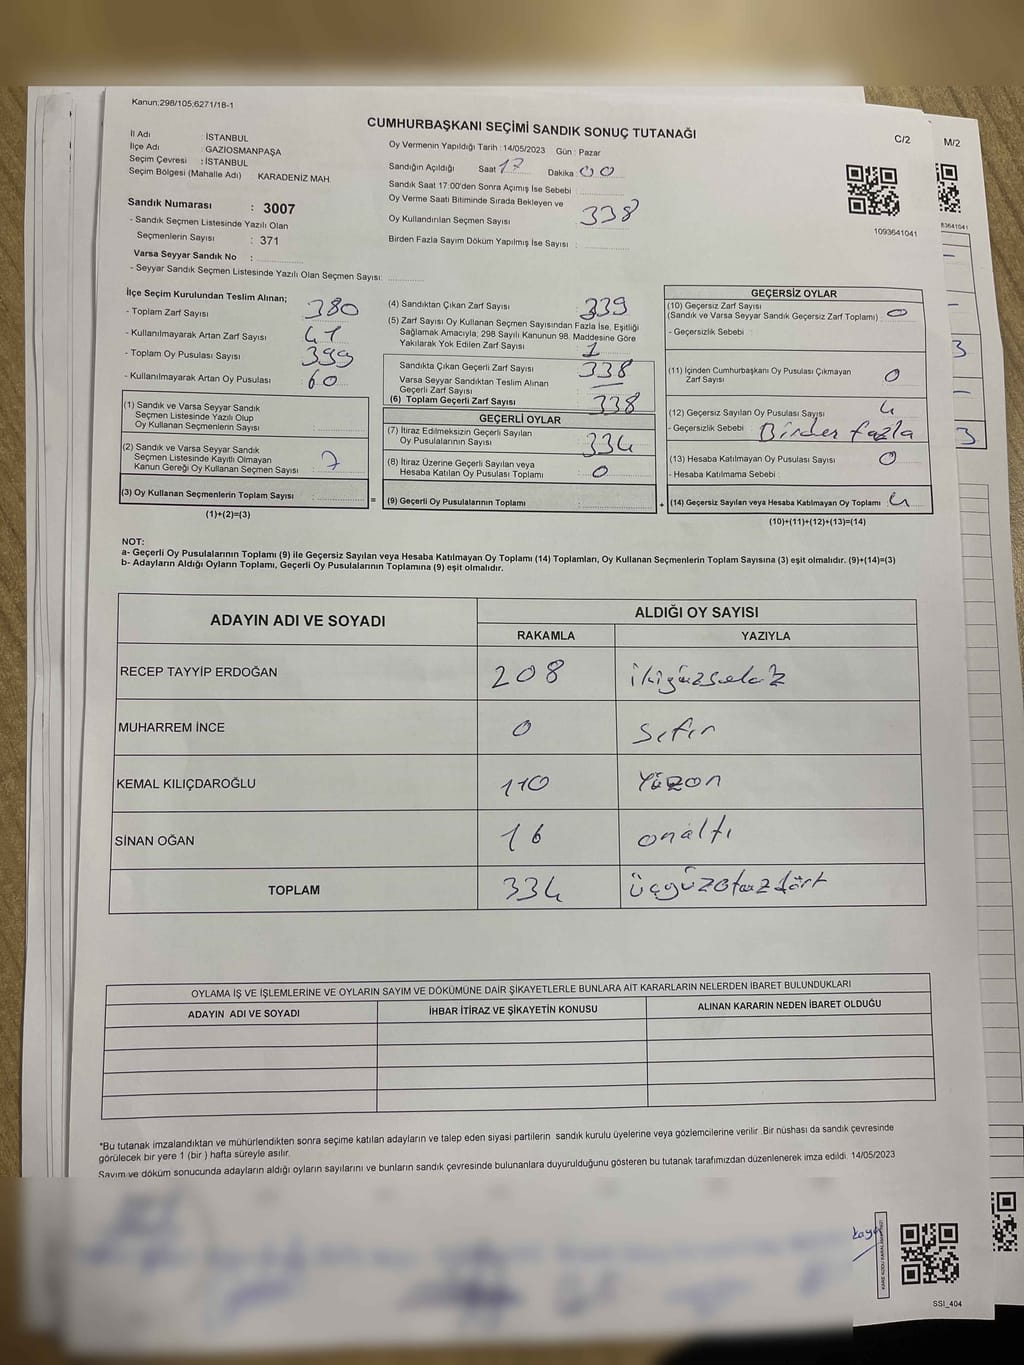 Kanun;298/105;6271/18-1
CUMHURBAŞKANI SEÇİMİ SANDIK SONUÇ TUTANAĞI
C/2
M/2
İl Adı : İSTANBUL
İlçe Adı : GAZİOSMANPAŞA
Seçim Çevresi : İSTANBUL
Seçim Bölgesi (Mahalle Adı) KARADENİZ MAH.
Sandık Numarası : 3007
- Sandık Seçmen Listesinde Yazılı Olan
Seçmenlerin Sayısı : 371
Varsa Seyyar Sandık No :
- Seyyar Sandık Seçmen Listesinde Yazılı Olan Seçmen Sayısı:
Oy Vermenin Yapıldığı Tarih : 14/05/2023 Gün : Pazar
Sandığın Açıldığı Saat 17 Dakika : 00
Sandık Saat 17:00'den Sonra Açımış İse Sebebi :
Oy Verme Saati Bitiminde Sırada Bekleyen ve
Oy Kullandırılan Seçmen Sayısı 338
Birden Fazla Sayım Döküm Yapılmış İse Sayısı :
1093641041
İlçe Seçim Kurulundan Teslim Alınan;
- Toplam Zarf Sayısı : 380
- Kullanılmayarak Artan Zarf Sayısı : 41
- Toplam Oy Pusulası Sayısı : 399
- Kullanılmayarak Artan Oy Pusulası : 60
(1) Sandık ve Varsa Seyyar Sandık
Seçmen Listesinde Yazılı Olup
Oy Kullanan Seçmenlerin Sayısı :
(2) Sandık ve Varsa Seyyar Sandık
Seçmen Listesinde Kayıtlı Olmayan
Kanun Gereği Oy Kullanan Seçmen Sayısı : 7
(3) Oy Kullanan Seçmenlerin Toplam Sayısı :
(1)+(2)=(3)
=
(4) Sandıktan Çıkan Zarf Sayısı : 339
(5) Zarf Sayısı Oy Kullanan Seçmen Sayısından Fazla İse, Eşitliği
Sağlamak Amacıyla, 298 Sayılı Kanunun 98. Maddesine Göre
Yakılarak Yok Edilen Zarf Sayısı : 1
Sandıkta Çıkan Geçerli Zarf Sayısı : 338
Varsa Seyyar Sandıktan Teslim Alınan
Geçerli Zarf Sayısı
(6) Toplam Geçerli Zarf Sayısı : 338
GEÇERLİ OYLAR
(7) İtiraz Edilmeksizin Geçerli Sayılan
Oy Pusulalarının Sayısı : 334
(8) İtiraz Üzerine Geçerli Sayılan veya
Hesaba Katılan Oy Pusulası Toplamı : 0
(9) Geçerli Oy Pusulalarının Toplamı :
+
GEÇERSİZ OYLAR
(10) Geçersiz Zarf Sayısı
(Sandık ve Varsa Seyyar Sandık Geçersiz Zarf Toplamı) : 0
- Geçersizlik Sebebi :
(11) İçinden Cumhurbaşkanı Oy Pusulası Çıkmayan
Zarf Sayısı : 0
(12) Geçersiz Sayılan Oy Pusulası Sayısı : 4
- Geçersizlik Sebebi : Birden fazla
(13) Hesaba Katılmayan Oy Pusulası Sayısı : 0
- Hesaba Katılmama Sebebi :
(14) Geçersiz Sayılan veya Hesaba Katılmayan Oy Toplamı : 4
(10)+(11)+(12)+(13)=(14)
NOT:
a- Geçerli Oy Pusulalarının Toplamı (9) ile Geçersiz Sayılan veya Hesaba Katılmayan Oy Toplamı (14) Toplamları, Oy Kullanan Seçmenlerin Toplam Sayısına (3) eşit olmalıdır. (9)+(14)=(3)
b- Adayların Aldığı Oyların Toplamı, Geçerli Oy Pusulalarının Toplamına (9) eşit olmalıdır.
ADAYIN ADI VE SOYADI
ALDIĞI OY SAYISI
RAKAMLA YAZIYLA
RECEP TAYYİP ERDOĞAN 208 ikiyüzsekiz
MUHARREM İNCE 0 Sıfır
KEMAL KILIÇDAROĞLU 110 Yüzon
SİNAN OĞAN 16 onaltı
TOPLAM 334 üçyüzotuzdört
OYLAMA İŞ VE İŞLEMLERİNE VE OYLARIN SAYIM VE DÖKÜMÜNE DAİR ŞİKAYETLERLE BUNLARA AİT KARARLARIN NELERDEN İBARET BULUNDUKLARI
ADAYIN ADI VE SOYADI İHBAR İTİRAZ VE ŞİKAYETİN KONUSU ALINAN KARARIN NEDEN İBARET OLDUĞU
*Bu tutanak imzalandıktan ve mühürlendikten sonra seçime katılan adayların ve talep eden siyasi partilerin sandık kurulu üyelerine veya gözlemcilerine verilir. Bir nüshası da sandık çevresinde
görülecek bir yere 1 (bir ) hafta süreyle asılır.
Sayım ve döküm sonucunda adayların aldığı oyların sayılarını ve bunların sandık çevresinde bulunanlara duyurulduğunu gösteren bu tutanak tarafımızdan düzenlenerek imza edildi. 14/05/2023
SSI_404